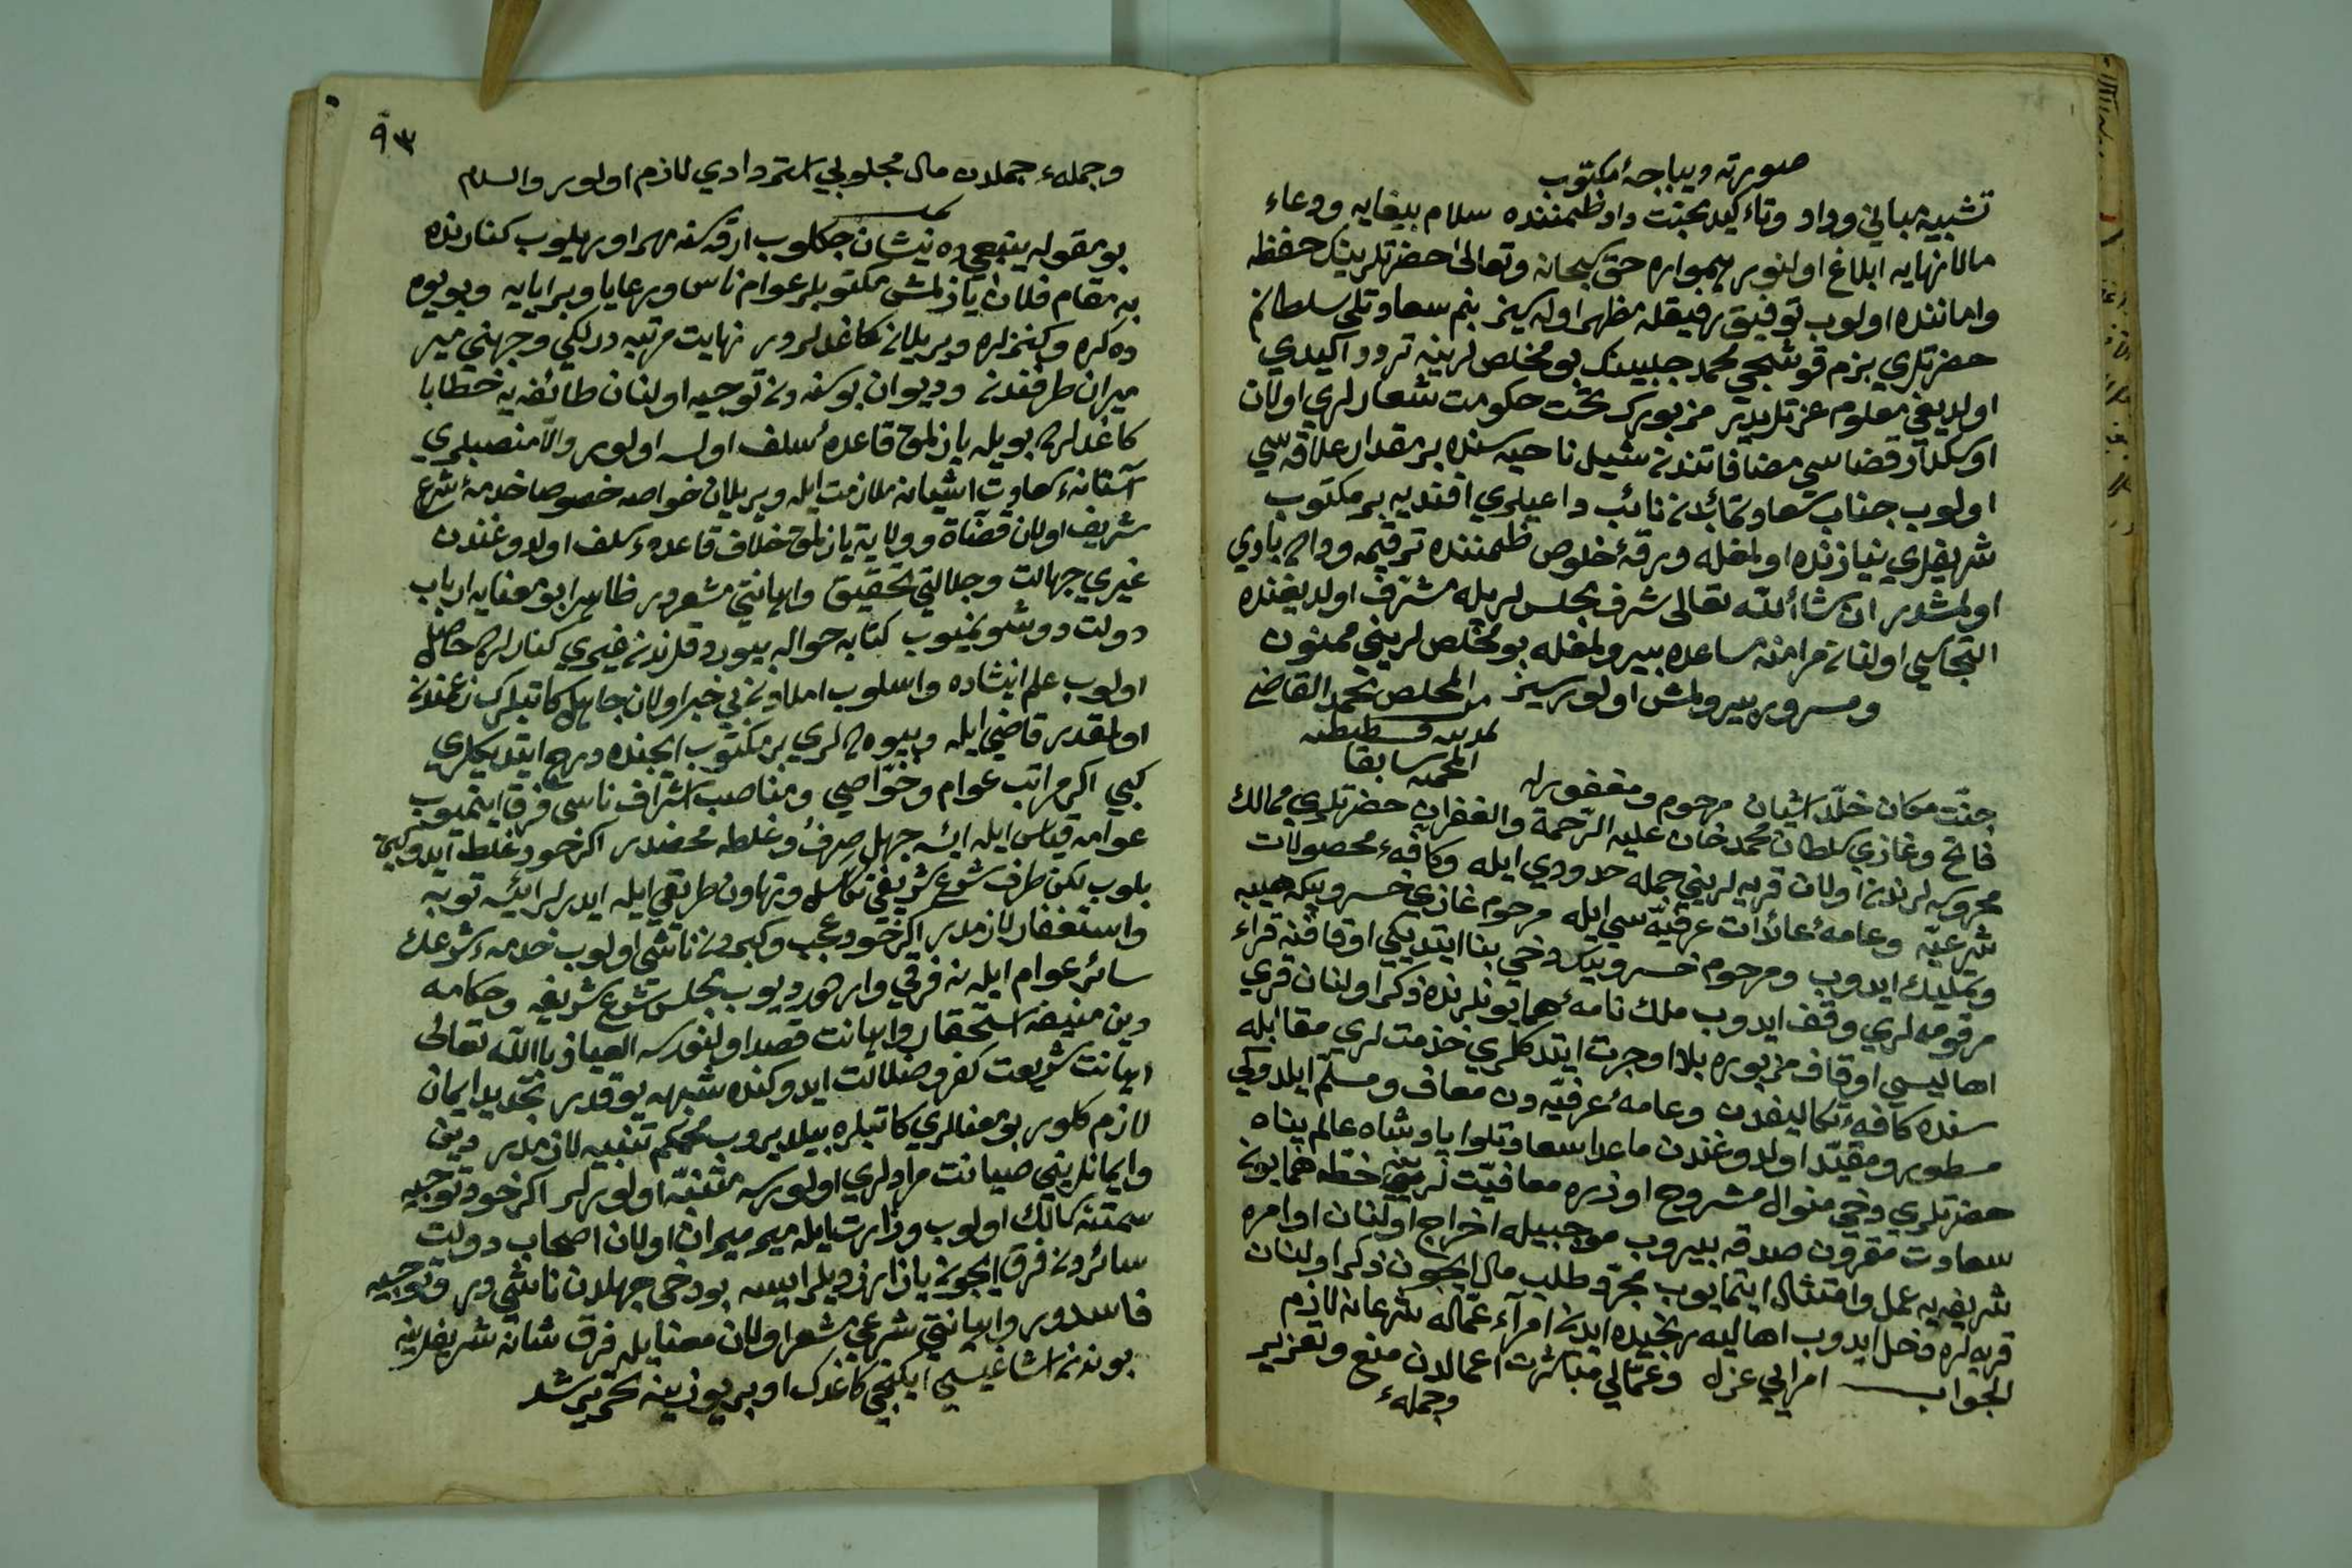 صورت ديباجهٔ مكتوب
تشييد مباني وداد وتأكيد محبت داد ضمننده سلام بيغايه ودعاء
مالانهايه ابلاغ اولنور همواره حق سبحانه وتعالى حضرتلرينك حفظ
واماننده اولوب توفيق رفيقله مظهر اوله سز بنم سعادتلى سلطانم
حضرتلري بزم قوشجي محمد چلبينك بو مخلصلرينه تردد اكيدي
اولديغي معلوم عزتلريدر مزبورك تحت حكومت شعارلري اولان
اوسكدار قضاسى مضافاتندن شيله ناحيه سنده بر مقدار علاقه سي
اولوب جناب سعادتمابدن نائب داعيلري افنديه بر مكتوب
شريفلري نيازنده اولمغله ورقهٔ خلوص ضمننده ترقيمه بادي
اولمشدر ان شاء الله تعالى شرف مجلسلريله مشرف اولديغنده
التجاسي اولنان مرامنه مساعده بيورلمغله بو مخلصلريني ممنون
ومسرور بيورلمش اولورسز من المخلص محمد القاضي
بمدينة قسطنطنيه
المحميه سابقا
جنت مكان خلد آشيان مرحوم ومغفور له
فاتح وغازي سلطان محمد خان عليه الرحمة والغفران حضرتلري ممالك
محروسه لرندن اولان قريه لريني جمله حدودي ايله وكافهٔ محصولات
شرعيه وعامهٔ عائدات عرفيه سي ايله مرحوم غازي خسرو بيكه هبه
وتمليك ايدوب ومرحوم خسرو بيك دخي بنا ايتديكي اوقافنه قراء
مرقومه لري وقف ايدوب ملك نامهٔ همايونلرنده ذكر اولنان قري
اهاليسي اوقاف مزبوره بلا اجرت ايتدكلري خدمتلري مقابله
سنده كافهٔ تكاليفدن وعامهٔ عرفيه دن معاف ومسلم ايلدوكي
مسطور ومقيد اولدوغندن ماعدا سعادتلو پادشاه عالم پناه
حضرتلري دخي منوال مشروح اوزره معافيت لرينه خط همايون
سعادت مقرون صدقه بيوروب موجبيله اخراج اولنان اوامره
شريفه يه عمل وامتثال ايتمايوب مجرد طلب مال ايچون ذكر اولنان
قريه لره دخل ايدوب اهاليه رنجيده ايدن امراء عماله شرعا نه لازم
الجواب امرايي عزل وعمالي مباشرت اعمالدن منع وتعزير
وجملهٔ
٩٣
وجملهٔ جملدن مال مجلوبي استردادي لازم اولور والسلام
بو مقوله يتبعي ده نيشان چكلوب ارقه سنه مهر اوريليوب كنارنده
به مقام فلان يازلمش مكتوبلر عوام ناس ورعايا وبرايايه وبويوه
ده لره وكنزلره ويريلان كاغدلردر نهايت مرتبه دزلكي وجهني مير
ميران طرفندن وديوان بوسنه دن توجيه اولنان طائفه يه خطابا
كاغدلره بويله يازلمق قاعدهٔ سلف اولسه اولور والا منصبلري
آستانهٔ سعادت آشيانه ملازمت ايله ويريلان خواصه خصوصا خدمهٔ شرع
شريف اولان قضاة وولاته يازلمق خلاف قاعدهٔ سلف اولدوغندن
غيري جهالت وجلالتي تحقيق واهانتي مشعردر ظاهرا بو معنايه ارباب
دولت دوشونميوب كتابه حواله بيوردقلرندن غيري كنارلره حاصل
اولوب علم انشاده واسلوب املادن بي خبر اولان جاهل كاتبلرك زعمندن
اولمقدر قاضي ايله وييوه لري بر مكتوب ايچنده درج ايتديكلري
كبي اكر مراتب عوام وخواصي ومناصب اشراف ناسى فرق ايتميوب
عوامه قياس ايله ايسه جهل صرف وغلطه محضدر اكر خود غلط ايدوكين
بلوب لكن طرف شرع شريفي تكاسل وتهاون طريقي ايله ايدرلر ايسه توبه
واستغفار لازمدر اكر خود عجب وكبردن ناشي اولوب خدمهٔ شرعك
سائر عوام ايله نه فرقي واردر ديوب مجلس شرع شريفه وحكامه
دين منيفه استحقار واهانت قصد اولنورسه العياذ بالله تعالى
اهانت شريعت كفر وضلالت ايدوكنده شبهه يوقدر تجديد ايمان
لازم كلور بو معنالري كاتبلره بيلديروب محكم تنبيه لازمدر دين
وايمانلريني صيانت مرادلري اولورسه متنبه اولورلر اكر خود توجيه
سمتنه سالك اولوب وزارت ايله مير ميران اولان اصحاب دولت
سائردن فرق ايچون يازارز ديرلر ايسه بو دخي جهلدن ناشي در وتوجيه
فاسددر واهانتي شرعي مشعر اولان معنايله فرق شان شريفلرينه
بوندن اشاغيسي ايكنجي كاغدك اوبر يوزينه تحرير شد